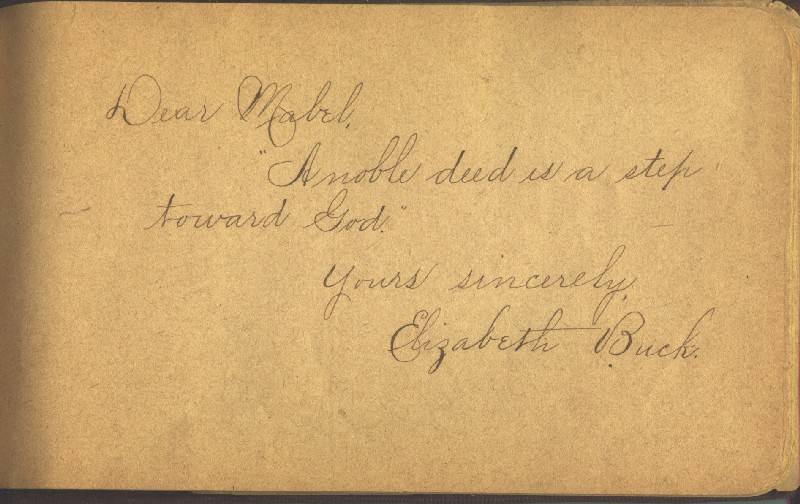 Dear Mabel,
"A noble deed is a step
toward God."
Yours sincerely,
Elizabeth Buck.